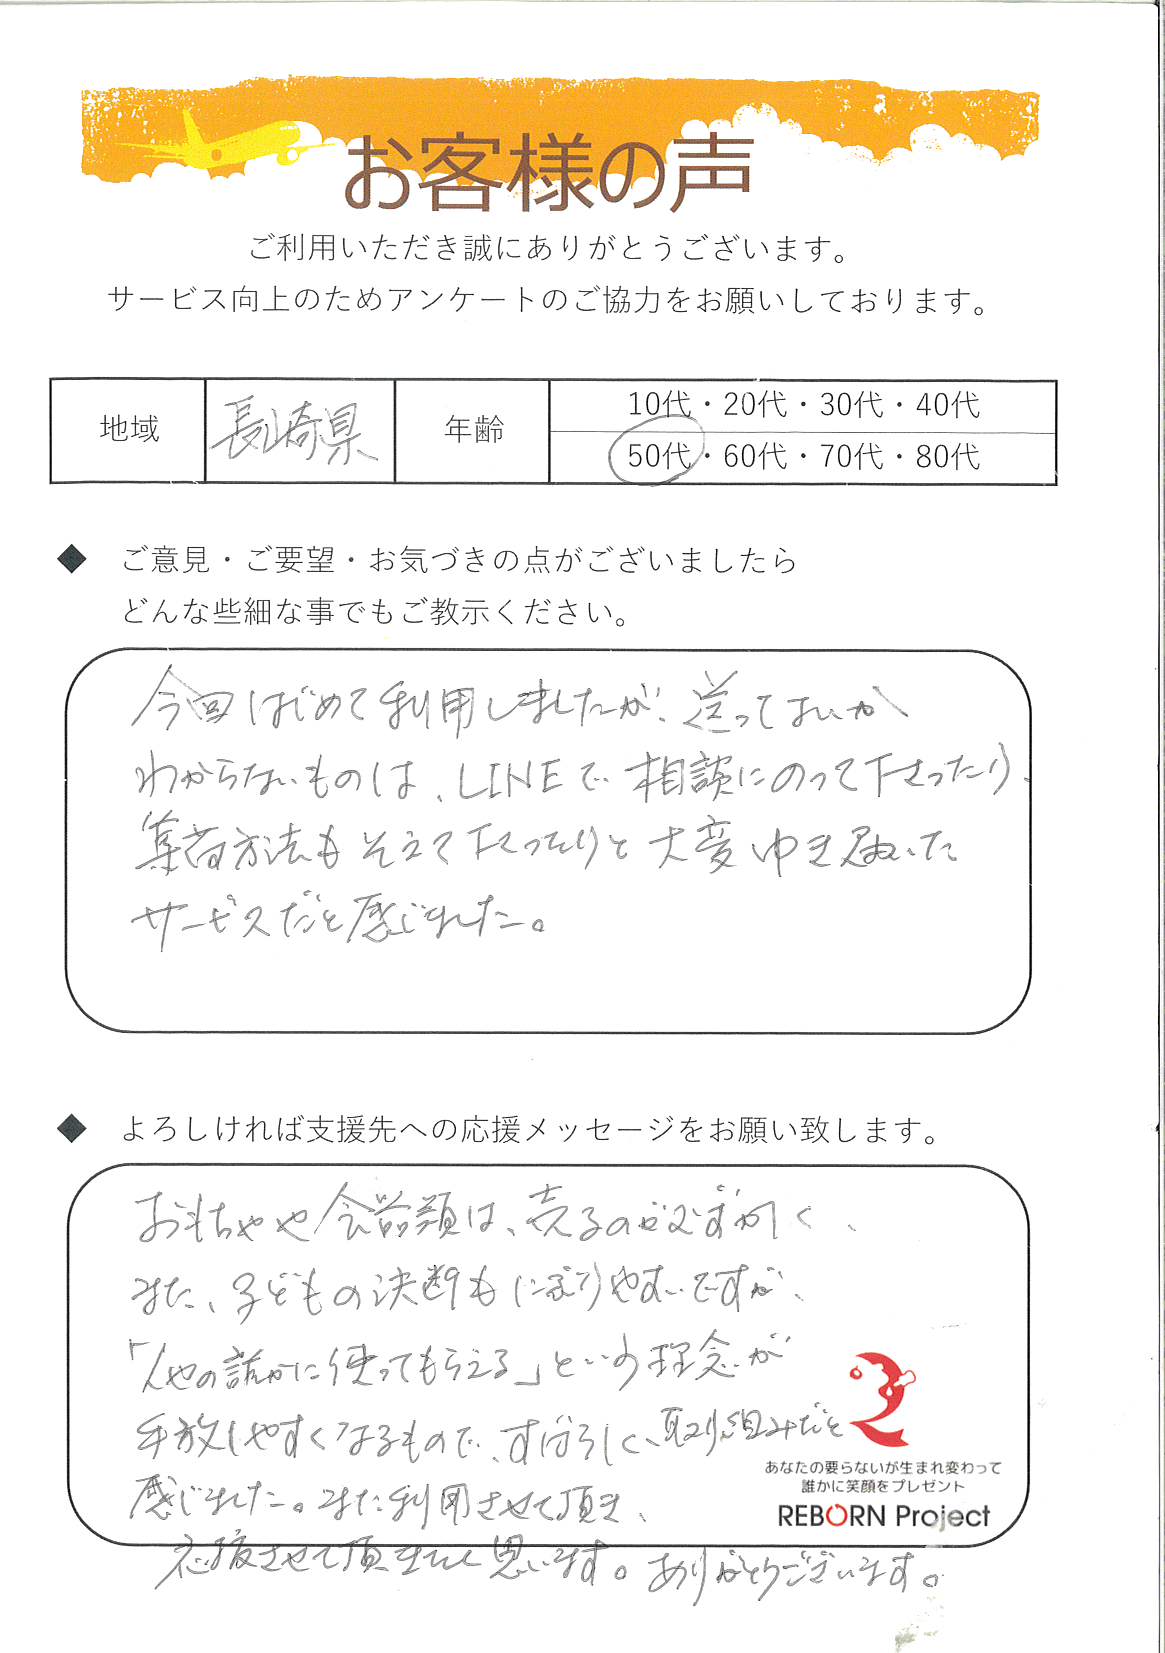 お客様の声
ご利用いただき誠にありがとうございます。
サービス向上のためアンケートのご協力をお願いしております。
地域 長崎県 年齢 10代・20代・30代・40代
50代・60代・70代・80代
◆ ご意見・ご要望・お気づきの点がございましたら
どんな些細な事でもご教示ください。
今回はじめて利用しましたが、送ってよいか
わからないものは、LINEで相談にのって下さったり、
集荷方法もそえて下さったりと大変ゆき届いた
サービスだと感じました。
◆ よろしければ支援先への応援メッセージをお願い致します。
おもちゃや食器類は、売るのがむずかしく、
また、子どもの決断もにぶりやすいですが、
「他の誰かに使ってもらえる」という理念が
手放しやすくなるもので、すばらしい取り組みだと
感じました。また利用させて頂き、
応援させて頂きたいと思います。ありがとうございます。
あなたの要らないが生まれ変わって
誰かに笑顔をプレゼント
REBORN Project